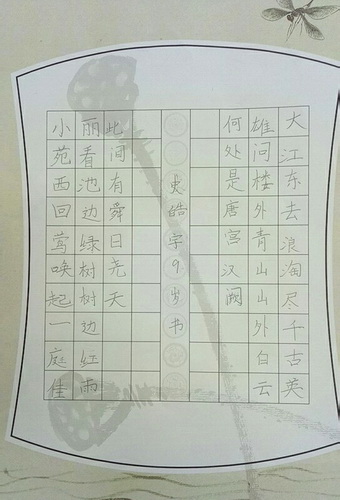 大江东去浪淘尽千古英
雄问楼外青山山外白云
何处是唐宫汉阙
史皓宇9岁书
小苑西回莺唤起一庭佳
丽看池边绿树树边红雨
此间有舜日尧天